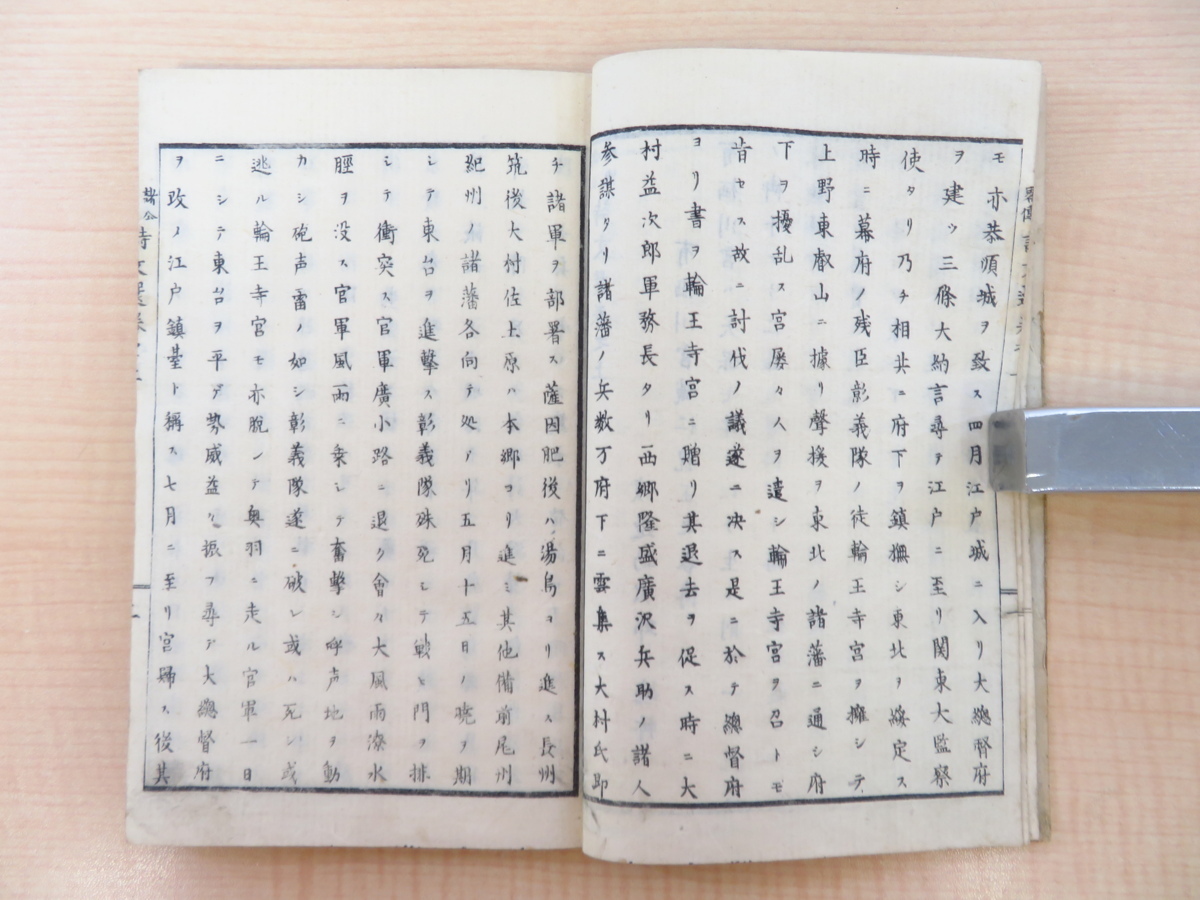 モ亦恭順城ヲ致ス四月江戸城ニ入リ大總督府
ヲ建ツ三條大納言尋テ江戸ニ至リ関東大監察
使タリ乃チ相共ニ府下ヲ鎮撫シ東北ヲ綏定ス
時ニ幕府ノ残臣彰義隊ノ徒輪王寺宮ヲ擁シテ
上野東叡山ニ據リ聲援ヲ東北ノ諸藩ニ通シ府
下ヲ擾乱ス宮屡々人ヲ遣シ輪王寺宮ヲ召トモ
肯セス故ニ討伐ノ議遂ニ决ス是ニ於テ總督府
ヨリ書ヲ輪王寺宮ニ贈リ其退去ヲ促ス時ニ大
村益次郎軍務長タリ西郷隆盛廣沢兵助ノ諸人
参謀タリ諸藩ノ兵数万府下ニ雲集ス大村氏即
チ諸軍ヲ部署ス薩因肥後ハ湯島ヨリ進ス長州
筑後大村佐土原ハ本郷ヨリ進ミ其他備前尾州
紀州ノ諸藩各向テ処アリ五月十五日ノ暁ヲ期
シテ東台ヲ進撃ス彰義隊殊死シテ戦ヒ門ヲ排
シテ衝突ス官軍廣小路ニ退ク會々大風雨潦水
脛ヲ没ス官軍風雨ニ乗シテ奮撃シ呼声地ヲ動
カシ砲声雷ノ如シ彰義隊遂ニ破レ或ハ死シ或
逃ル輪王寺宮モ亦脱シテ奥羽ニ走ル官軍一日
ニシテ東台ヲ平ケ勢威益々振フ尋テ大總督府
ヲ改メ江戸鎮臺ト稱ス七月ニ至リ宮歸ス後其
諸公詩文選巻之